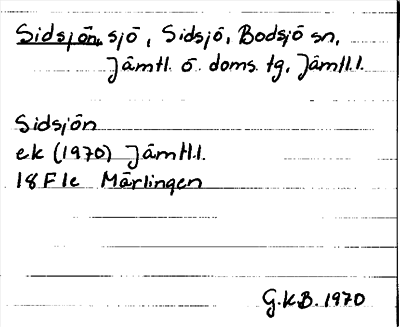 Sidsjön, sjö, Sidsjö, Bodsjö sn,
Jämtl. ö. doms. tg, Jämtl.l.
Sidsjön
ek (1970) Jämtl.l.
18F1e Märlingen
G.K.B. 1970